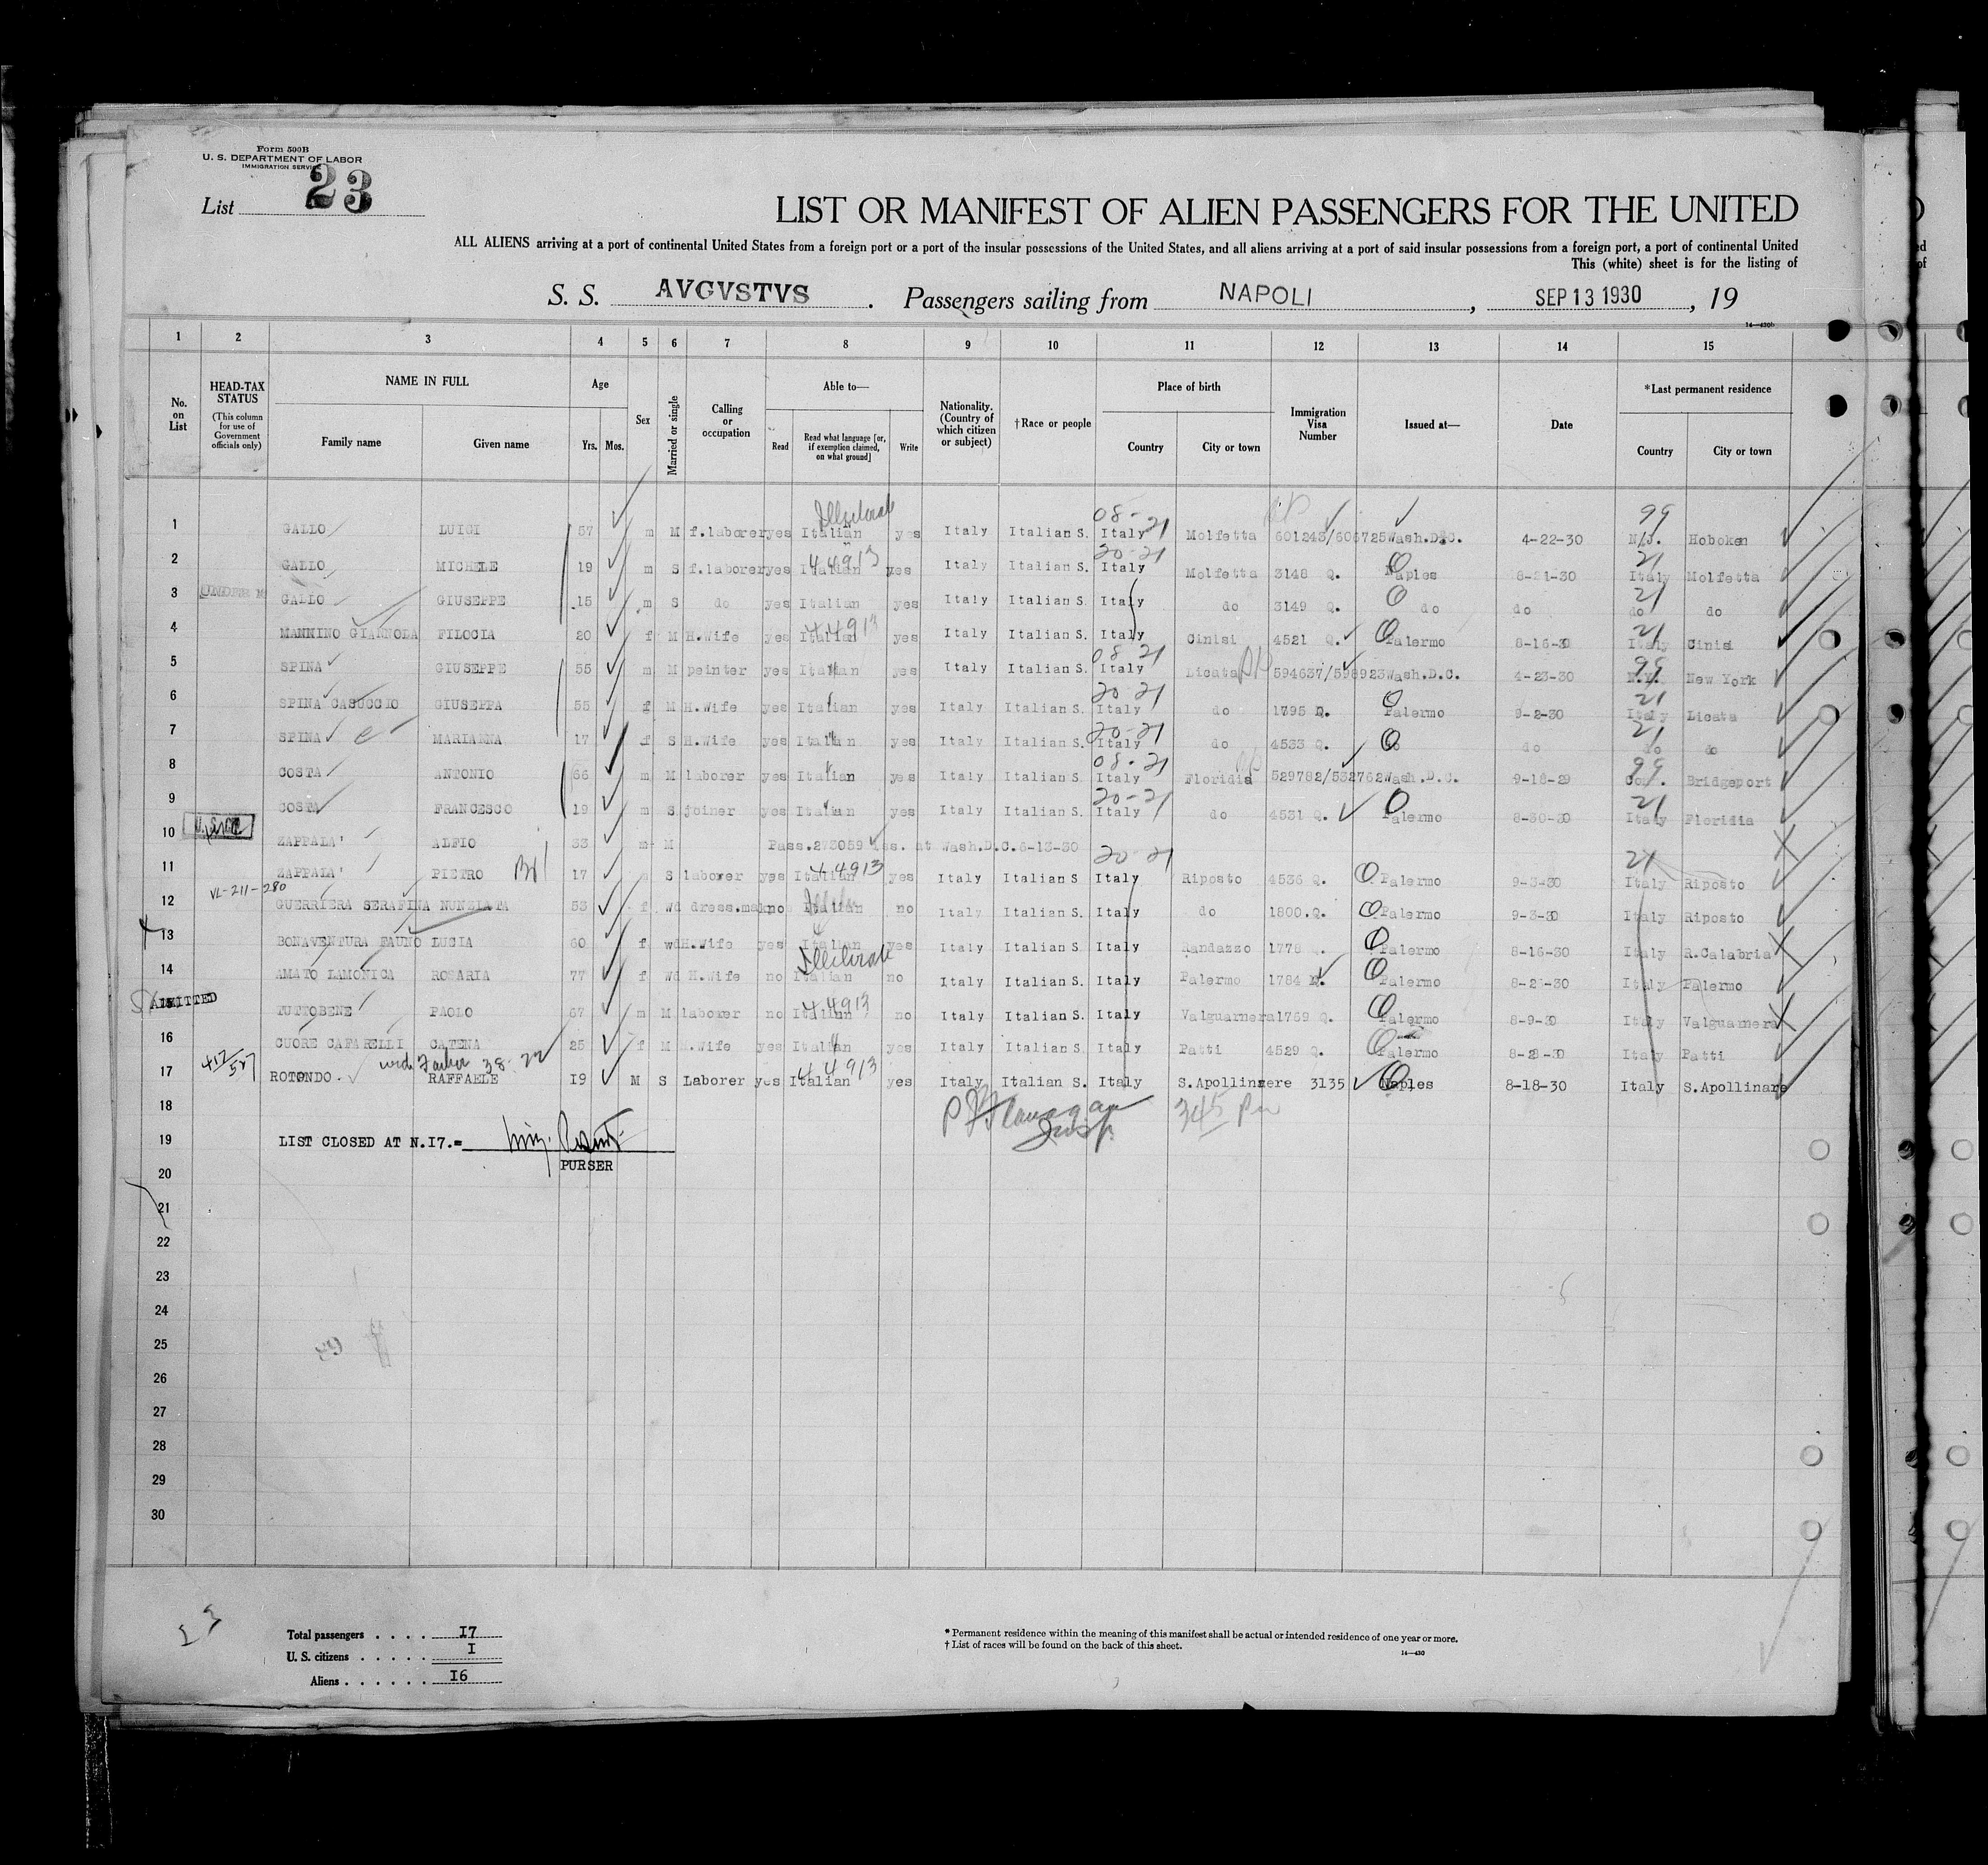 Form 500B
U. S. DEPARTMENT OF LABOR
IMMIGRATION SERVICE
List 23
LIST OR MANIFEST OF ALIEN PASSENGERS FOR THE UNITED
ALL ALIENS arriving at a port of continental United States from a foreign port or a port of the insular possessions of the United States, and all aliens arriving at a port of said insular possessions from a foreign port, a port of continental United
This (white) sheet is for the listing of
S. S. AVGVSTVS . Passengers sailing from NAPOLI , SEP 13 1930 , 19
14—430b
1 2 3 4 5 6 7 8 9 10 11 12 13 14 15
No. on List
HEAD-TAX STATUS (This column for use of Government officials only)
NAME IN FULL Family name Given name
Age Yrs. Mos.
Sex
Married or single
Calling or occupation
Able to— Read Read what language [or, if exemption claimed, on what ground] Write
Nationality. (Country of which citizen or subject)
†Race or people
Place of birth Country City or town
Immigration Visa Number
Issued at—
Date
*Last permanent residence Country City or town
08-21 99
1 GALLO LUIGI 57 m M f.laborer yes Italian yes Italy Italian S. Italy Molfetta 601243/606725 Wash.D.C. 4-22-30 N.J. Hoboken
44913 20-21 21
2 GALLO MICHELE 19 m S f.laborer yes Italian yes Italy Italian S. Italy Molfetta 3148 Q. Naples 8-21-30 Italy Molfetta
21
3 UNDER 16 GALLO GIUSEPPE 15 m S do yes Italian yes Italy Italian S. Italy do 3149 Q. do do do do
44913 21
4 MANNINO GIANNOLA FILOCIA 20 f M H.Wife yes Italian yes Italy Italian S. Italy Cinisi 4521 Q. Palermo 8-16-30 Italy Cinisi
08 21 99
5 SPINA GIUSEPPE 55 m M peinter yes Italian yes Italy Italian S. Italy Licata 594637/598923 Wash.D.C. 4-23-30 N.Y. New York
20 21 21
6 SPINA CASUCCIO GIUSEPPA 55 f M H.Wife yes Italian yes Italy Italian S. Italy do 1795 Palermo 9-2-30 Italy Licata
20-21 21
7 SPINA MARIANNA 17 f S H.Wife yes Italian yes Italy Italian S. Italy do 4533 Q. do do do
08-21 99
8 COSTA ANTONIO 66 m M laborer yes Italian yes Italy Italian S. Italy Floridia 529782/532762 Wash.D.C. 9-18-29 Bridgeport
20-21 21
9 COSTA FRANCESCO 19 m S joiner yes Italian yes Italy Italian S. Italy do 4531 Q. Palermo 8-30-30 Italy Floridia
10 ZAPPALA' ALFIO 33 m M Pass.273059 iss. at Wash.D.C. 6-13-30
44913 20 21 21
11 ZAPPALA' PIETRO 17 m S laborer yes Italian yes Italy Italian S Italy Riposto 4536 Q. Palermo 9-3-30 Italy Riposto
VL-211-280
12 GUERRIERA SERAFINA NUNZIATA 53 f wd dress.mak no Italian no Italy Italian S. Italy do 1800.Q. Palermo 9-3-30 Italy Riposto
13 BONAVENTURA FAUNO LUCIA 60 f wd H.Wife yes Italian yes Italy Italian S. Italy Randazzo 1778 Q. Palermo 8-16-30 Italy R.Calabria
Illiterate
14 AMATO LAMONICA ROSARIA 77 f wd H.Wife no Italian no Italy Italian S. Italy Palermo 1784 Palermo 8-21-30 Italy Palermo
ADMITTED 44913
TUTTOBENE PAOLO 67 m M laborer no Italian no Italy Italian S. Italy Valguarnera 1769 Q. Palermo 8-9-30 Italy Valguarnera
16 CUORE CAFARELLI CATENA 25 f M H.Wife yes Italian yes Italy Italian S. Italy Patti 4529 Q. Palermo 8-28-30 Italy Patti
44913
17 ROTONDO. RAFFAELE 19 M S Laborer yes Italian yes Italy Italian S. Italy S.Apollinare 3135 Naples 8-18-30 Italy S.Apollinare
18
19 LIST CLOSED AT N.I7.=
PURSER
20
21
22
23
24
25
26
27
28
29
30
23
Total passengers . . . . I7
U. S. citizens . . . . . I
Aliens . . . . . . I6
* Permanent residence within the meaning of this manifest shall be actual or intended residence of one year or more.
† List of races will be found on the back of this sheet.
14—430